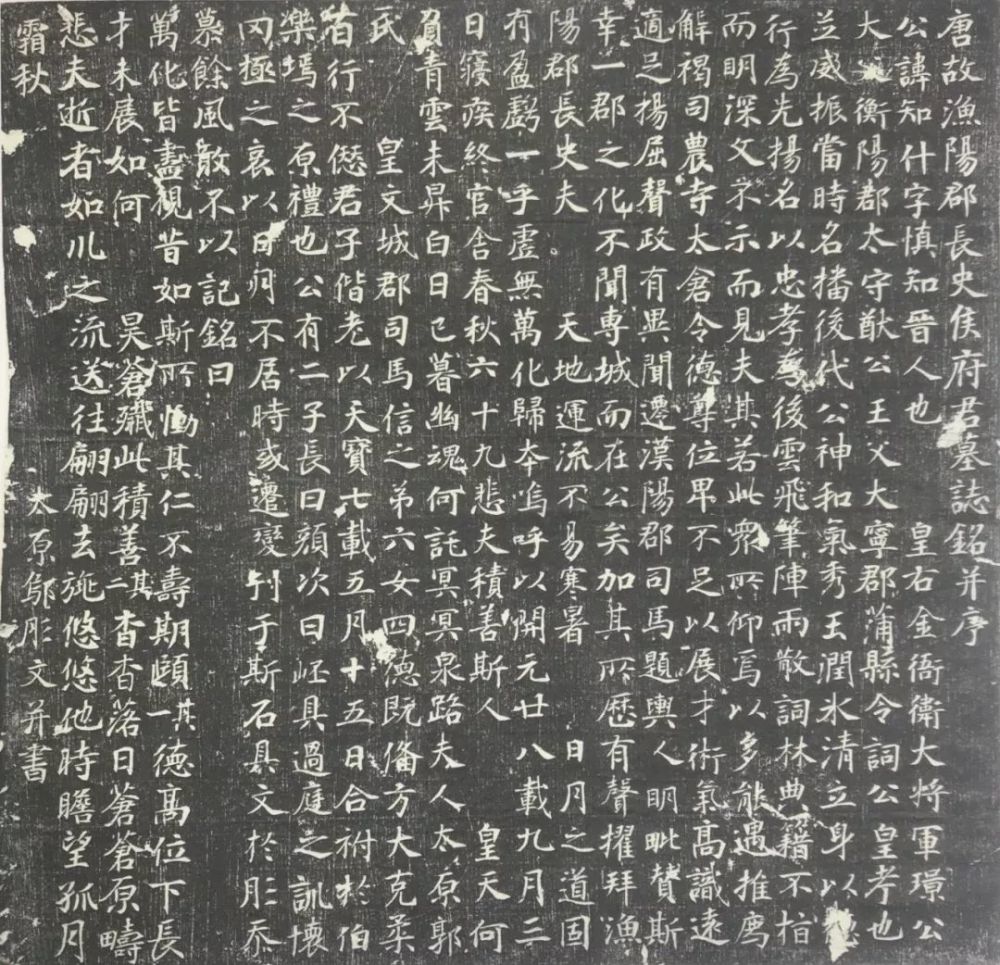 唐故漁陽郡長史侯府君墓誌銘并序
公諱知什字慎知晉人也 皇右金衙衛大將軍璟公
大父衡陽郡太守猷公王父大寧郡蒲縣令詞公皇考也
並威振當時名播後代公神和氣秀玉潤氷清立身以德
行為先揚名以忠孝為後雲飛筆陣雨散詞林典籍不枱
而明深文不示而見夫其若此眾所仰焉以多能遇推薦
解褐司農寺太倉令德尊位卑不足以展才術氣高識遠
適足揚屈聲政有異聞遷漢陽郡司馬題輿人明毗贊斯
幸一郡之化不聞專城而在公矣加其所歷有聲擢拜漁
陽郡長史夫 天地運流不易寒暑 日月之道固
有盈虧一乎虛無萬化歸本嗚呼以開元廿八載九月三
日寢疾終官舍春秋六十九悲夫積善斯人 皇天何
負青雲未昇白日已暮幽魂何託冥冥泉路夫人太原郭
氏 皇文城郡司馬信之弟六女四德既備方大克柔
百行不愆君子偕老以天寶七載五月十五日合祔於伯
樂塢之原禮也公有二子長曰顏次曰岯具過庭之訓懷
罔極之哀以日月不居時或遷變刊于斯石具文於肜忝
慕餘風敢不以記銘曰
萬化皆盡視昔如斯所慟其仁不壽期頤其一德高位下長
才未展如何 昊蒼殲此積善其二杳杳落日蒼蒼原疇
悲夫逝者如川之流送往翩翩去旐悠悠他時瞻望孤月
霜秋 太原鄔肜文并書